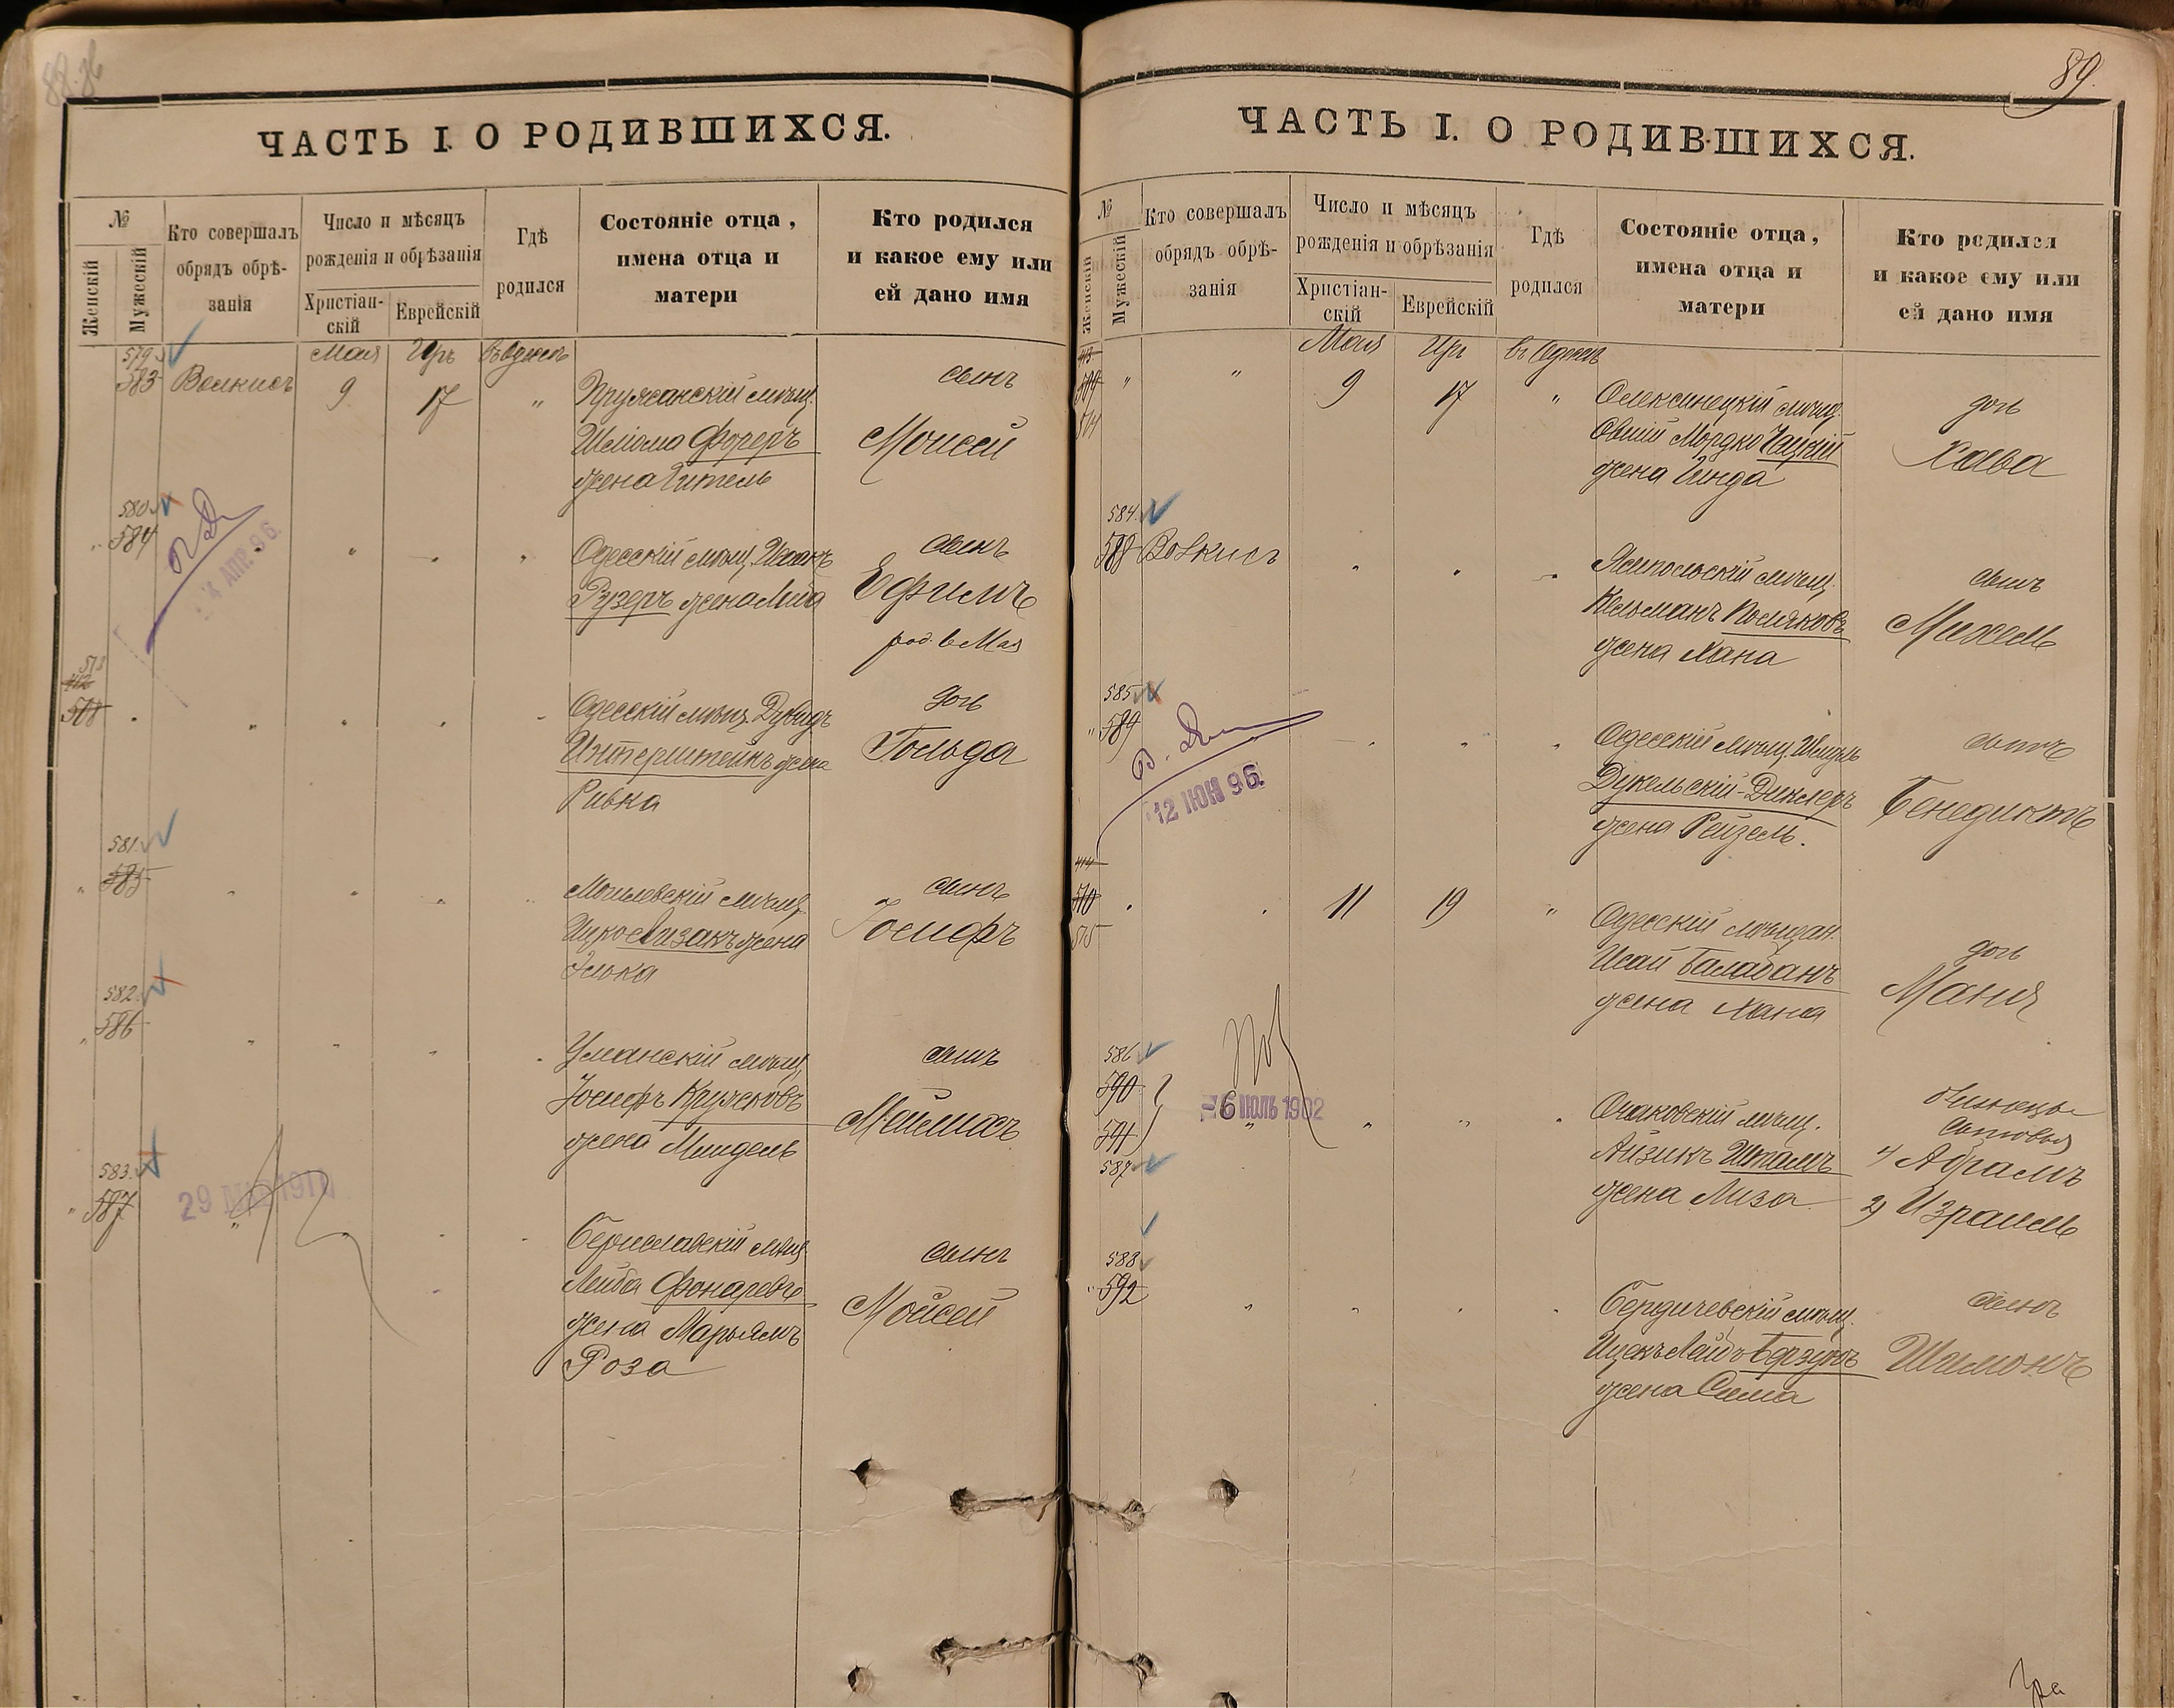 88 об
ЧАСТЬ I. О РОДИВШИХСЯ.
№
Женскій
Мужескій
Кто совершалъ
обрядъ обрѣ-
занія
Число и мѣсяцъ
рожденія и обрѣзанія
Христіан-
скій
Еврейскій
Гдѣ
родился
Состояніе отца,
имена отца и
матери
Кто родился
и какое ему или
ей дано имя
579
583 Волкисъ
Мая Иръ въ Одессѣ
9 17 "
Пружанскій мѣщ.
Шліома Фореръ
жена Гитель
сынъ
Моисей
580
584
14 АПР. 96.
Одесскій мѣщ. Исаакъ
Рузеръ жена Либа
сынъ
Ефимъ
род. 6 Мая
513
412
508
Одесскій мѣщ. Дувидъ
Интерштейнъ жена
Ривка
дочь
Гольда
581
585
Могилевскій мѣщ.
Ицко Лизакъ жена
Элька
сынъ
Іосифъ
582
586
Уманскій мѣщ.
Іосифъ Кружковъ
жена Миндель
сынъ
Меилихъ
583
587
29
Бериславскій мѣщ.
Лейба Фонаревъ
жена Марьямъ
Роза
сынъ
Моисей
89.
ЧАСТЬ I. О РОДИВШИХСЯ.
№
Женскій
Мужескій
Кто совершалъ
обрядъ обрѣ-
занія
Число и мѣсяцъ
рожденія и обрѣзанія
Христіан-
скій
Еврейскій
Гдѣ
родился
Состояніе отца,
имена отца и
матери
Кто родился
и какое ему или
ей дано имя
413
509
514
Мая Иръ въ Одессѣ
9 17 "
Олексинецкій мѣщ.
Овшій Мордко Чацкій
жена Гинда
дочь
Хава
584
588 Волкисъ
Ямпольскій мѣщ.
Кельманъ Поляковъ
жена Хана
сынъ
Михель
585
589
12 ІЮН 96.
Одесскій мѣщ.
Дукельскій-Диклеръ
жена Рейзель.
сынъ
Бенедиктъ
414
510
515
11 19 "
Одесскій мѣщан.
Исай Балабанъ
жена Хана
дочь
Маня
586
590
591
587
-6 ІЮЛЬ 1902
Очаковскій мѣщ.
Айзикъ Шталь
жена Лиза
близнецы
сыновья
1) Абрамъ
2) Израиль
588
592
Бердичевскій мѣщ.
Ицекъ Лейбъ Борзукъ
жена Сима
сынъ
Шимонъ